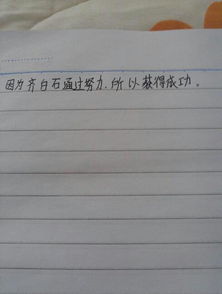 因为齐白石通过努力,所以获得成功。